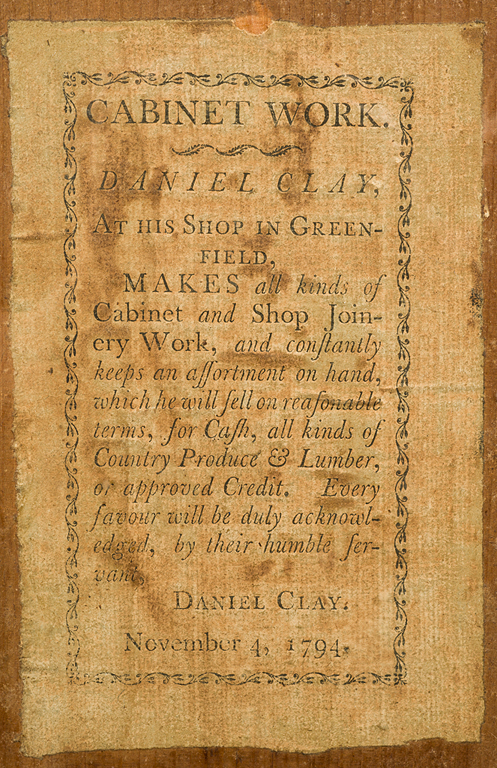 CABINET WORK.
DANIEL CLAY,
At his Shop in Green-
field,
MAKES all kinds of
Cabinet and Shop Join-
ery Work, and conſtantly
keeps an aſſortment on hand,
which he will ſell on reaſonable
terms, for Caſh, all kinds of
Country Produce & Lumber,
or approved Credit. Every
favour will be duly acknowl-
edged, by their humble ſer-
vant,
Daniel Clay.
November 4, 1794.